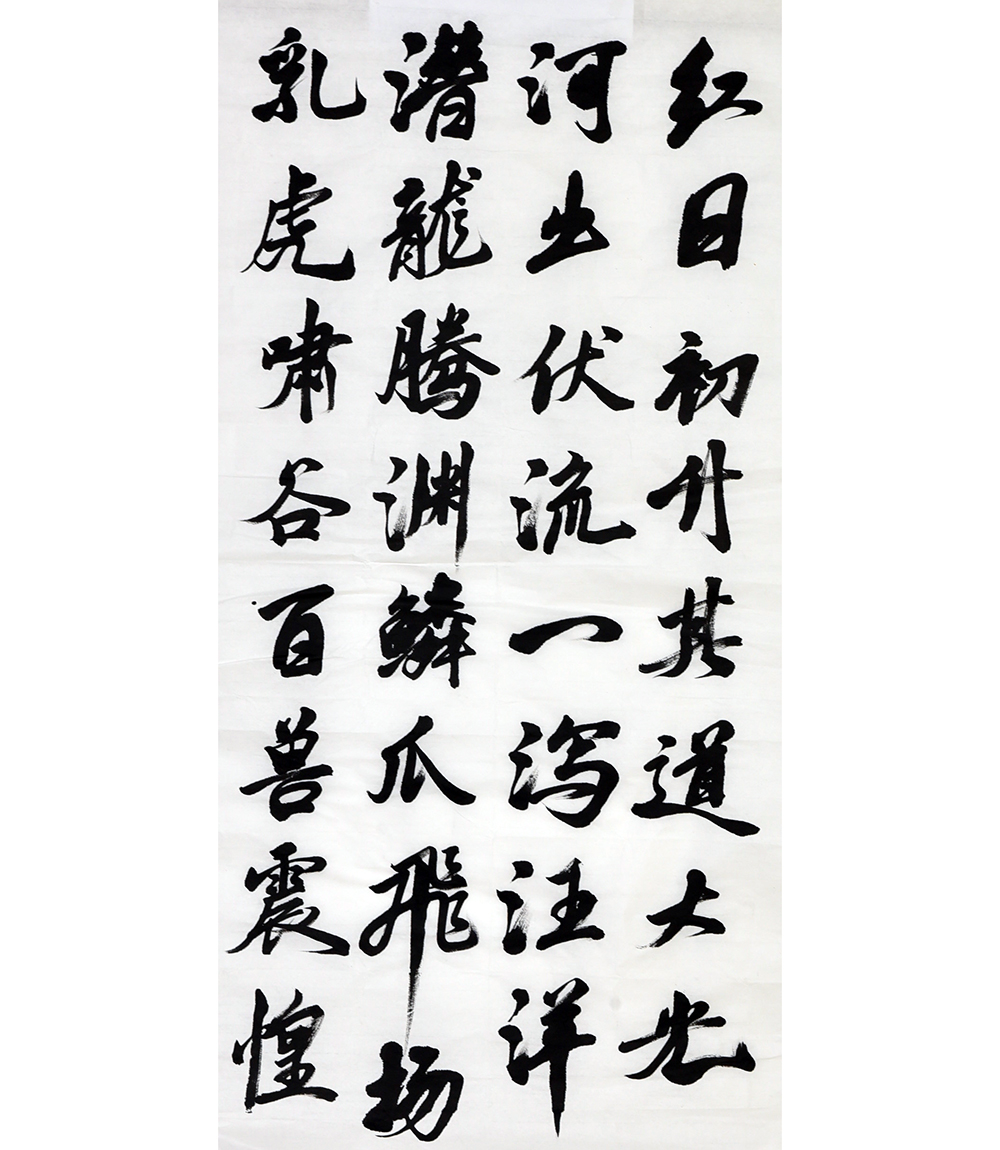 红日初升其道大光
河出伏流一泻汪洋
潜龍腾渊鳞爪飛扬
乳虎啸谷百兽震惶